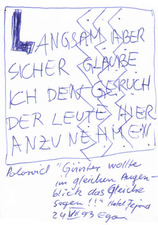 LANGSAM ABER
SICHER GLAUBE
ICH DEN GERUCH
DER LEUTE HIER
ANZUNEHMEN!!!
"Günter wollte
im gleichen Augen-
blick das Gleiche
sagen!!!" Hotel
24 VII 93 Egon